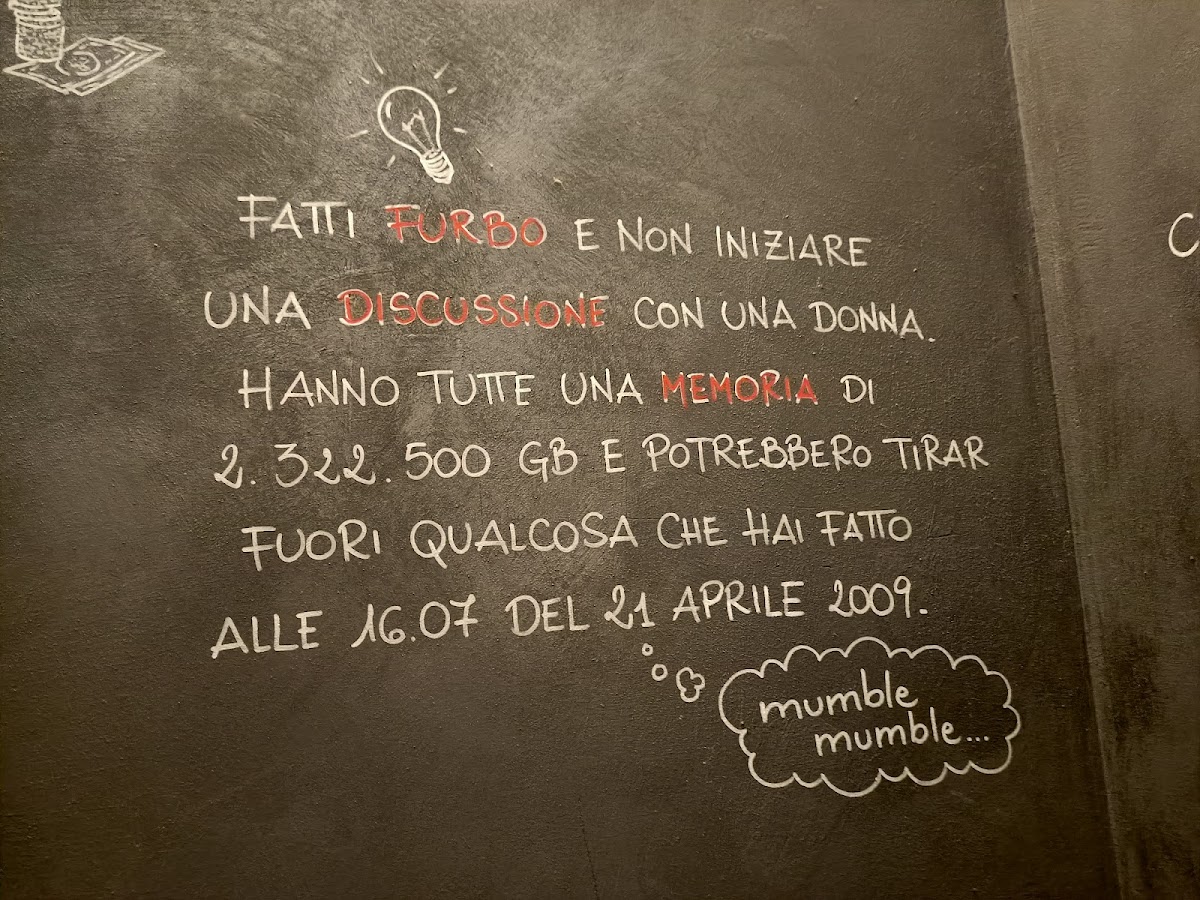 FATTI FURBO E NON INIZIARE
UNA DISCUSSIONE CON UNA DONNA.
HANNO TUTTE UNA MEMORIA DI
2.322.500 GB E POTREBBERO TIRAR
FUORI QUALCOSA CHE HAI FATTO
ALLE 16.07 DEL 21 APRILE 2009.
mumble
mumble...
C